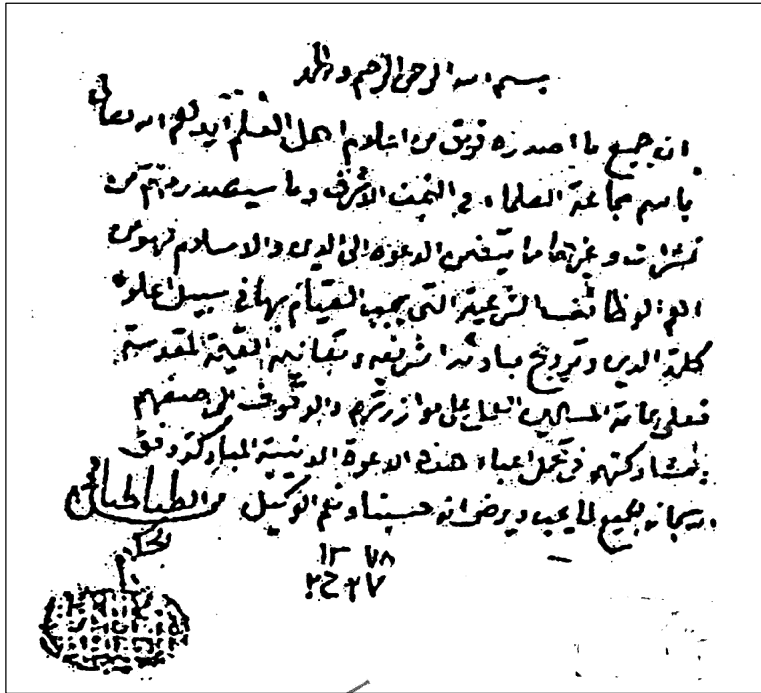 بسم الله الرحمن الرحيم وله الحمد
ان جميع ما اصدره فريق من اعلام اهل العلم ايدهم الله تعالى
باسم جماعة العلماء في النجف الاشرف وما سيصدر منهم من
نشرات وغيرها مما يتضمن الدعوة الى الدين والاسلام لهو من
اهم الوظائف الشرعية التي يجب القيام بها في سبيل اعلاء
كلمة الدين وترويج مبادئه الشريفة وتعاليمه القيمة المقدسة
فعلى عامة المسلمين العمل على موازرتهم والوقوف الى صفهم
ومشاركتهم في تحمل اعباء هذه الدعوة الدينية المباركة وفق
الله سبحانه الجميع لما يحب ويرضى انه حسبنا ونعم الوكيل محسن الطباطبائي
الحكيم
١٣٧٨
٢٧ ج ٢